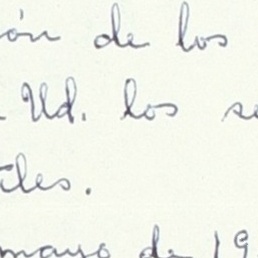 ión de los
Ud. los se
tiles.
mayo de 19